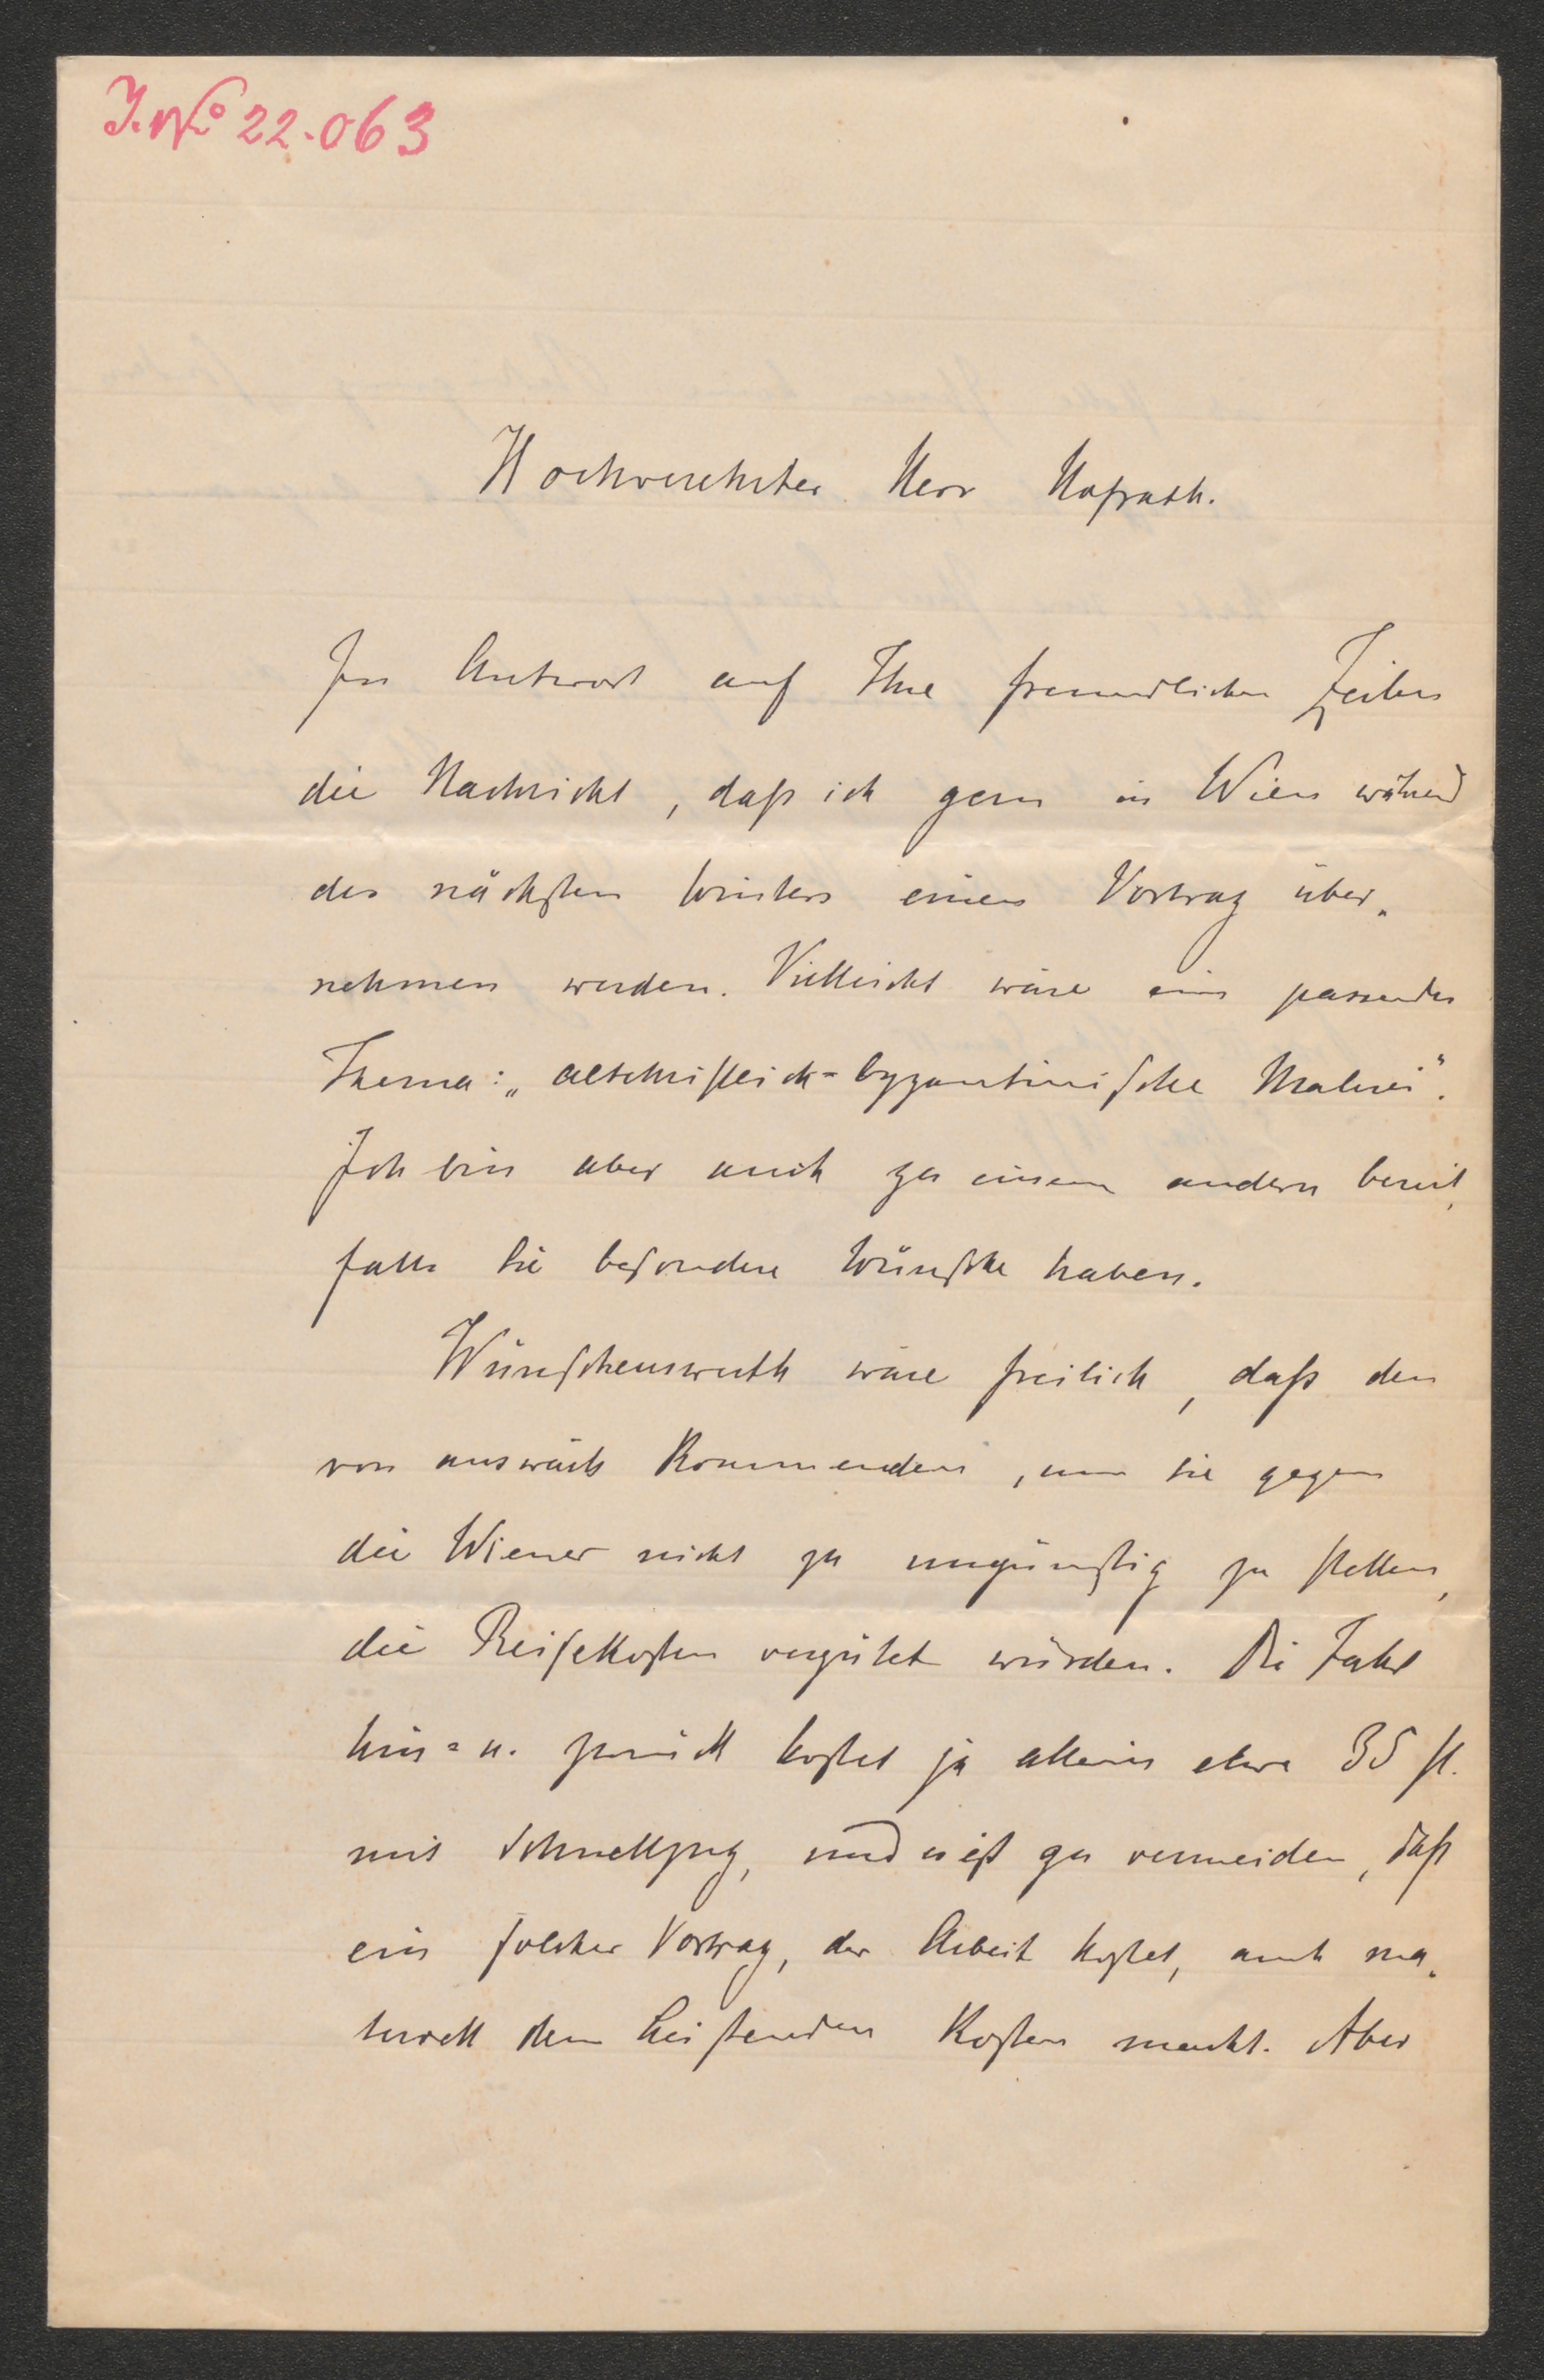 J. No 22.063
Hochverehrter Herr Hofrath.
In Antwort auf Ihre freundlichen Zeilen
die Nachricht, daß ich gern in Wien während
des nächsten Winters einen Vortrag über„
nehmen werden. Vielleicht wäre ein passendes
Thema: „altchristlich=byzantinische Malerei“.
Ich bin aber auch zu einem andern bereit,
falls Sie besondere Wünsche haben.
Wünschenswerth wäre freilich, daß den
von auswärts Kommenden, um sie gegen
die Wiener nicht zu ungünstig zu stellen,
die Reisekosten vergütet würden. Die Fahrt
hin= u. zurück kostet ja allein etwa 35 fl.
mit Schnellzug, und es ist zu vermeiden, daß
ein solcher Vortrag, der Arbeit kostet, auch ma„
teriell dem Leistenden Kosten macht. Aber